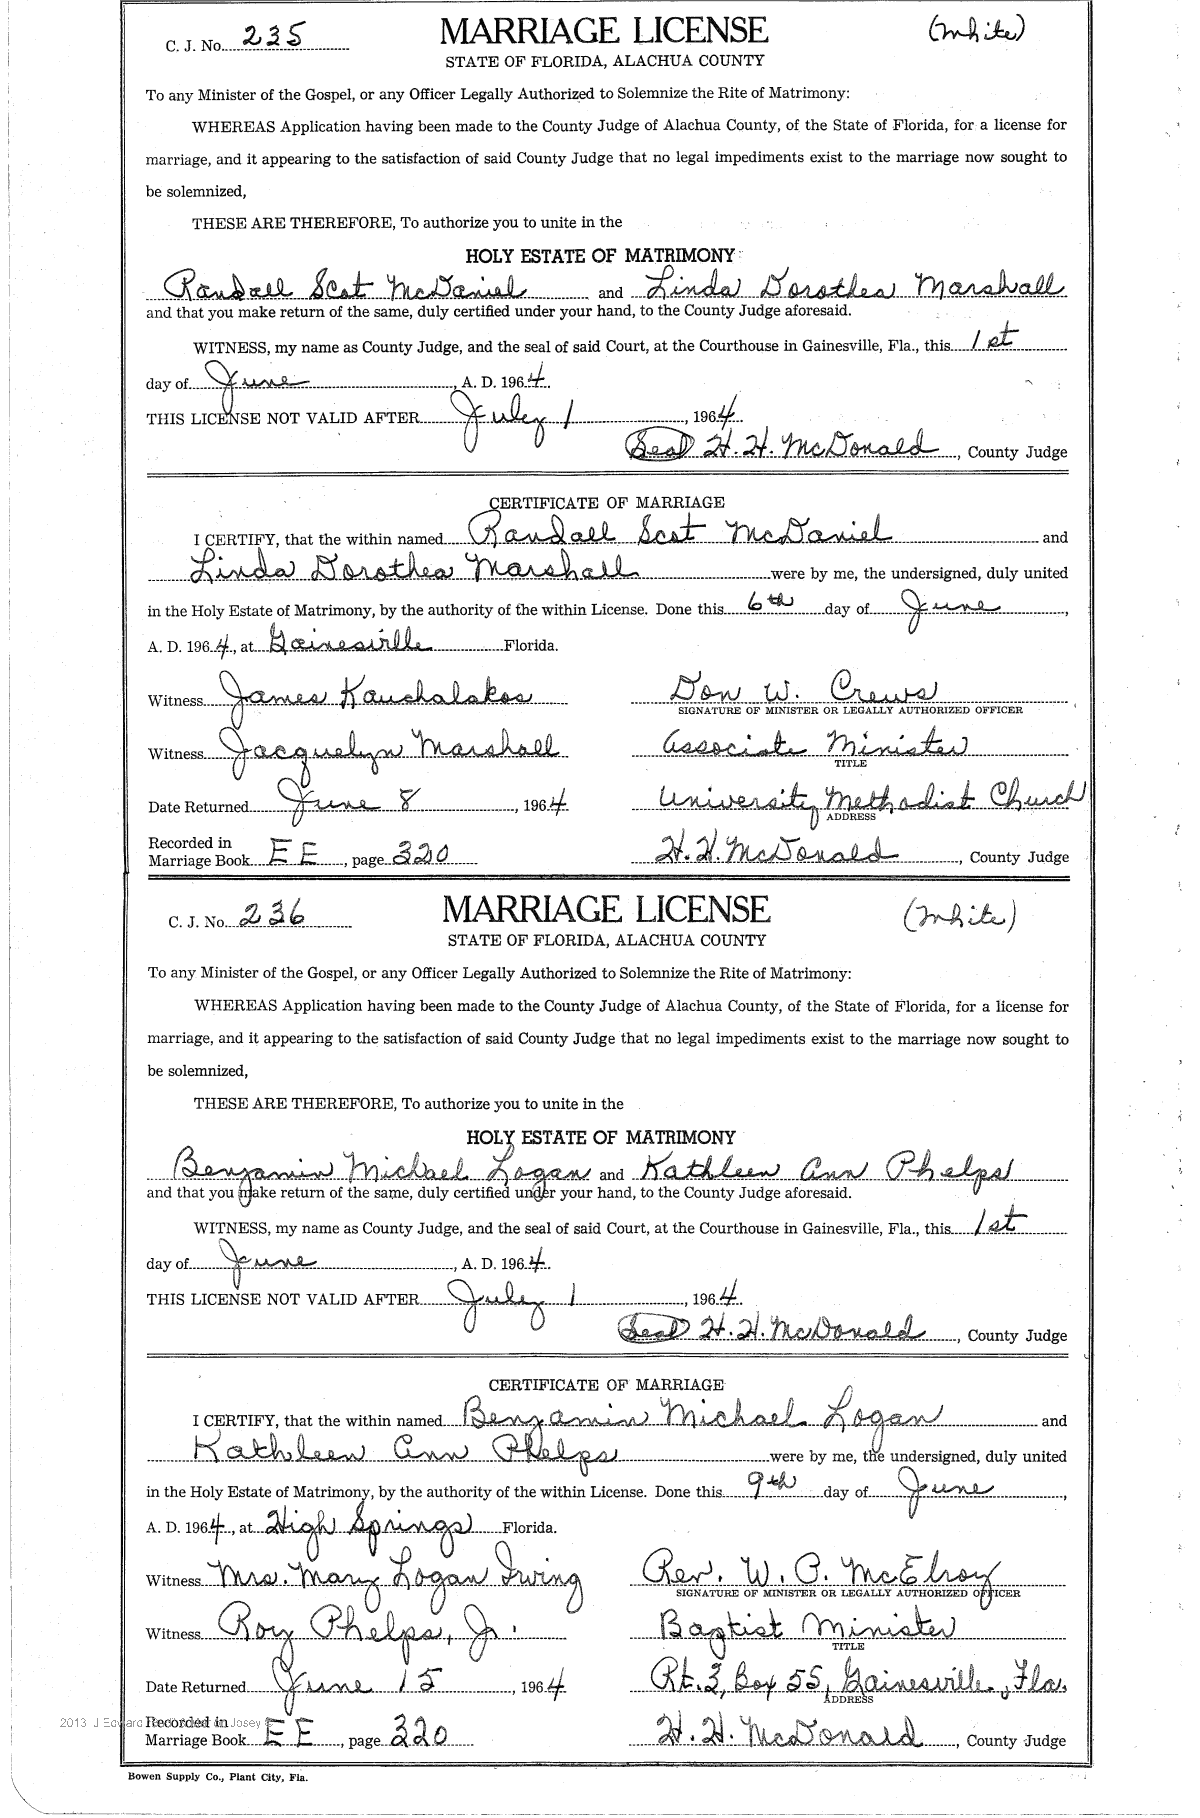 C. J. No. 235 MARRIAGE LICENSE (White)
STATE OF FLORIDA, ALACHUA COUNTY
To any Minister of the Gospel, or any Officer Legally Authorized to Solemnize the Rite of Matrimony:
WHEREAS Application having been made to the County Judge of Alachua County, of the State of Florida, for a license for
marriage, and it appearing to the satisfaction of said County Judge that no legal impediments exist to the marriage now sought to
be solemnized,
THESE ARE THEREFORE, To authorize you to unite in the
HOLY ESTATE OF MATRIMONY
Randall Scot McDaniel and Linda Dorothea Marshall
and that you make return of the same, duly certified under your hand, to the County Judge aforesaid.
WITNESS, my name as County Judge, and the seal of said Court, at the Courthouse in Gainesville, Fla., this 1st
day of June, A. D. 1964.
THIS LICENSE NOT VALID AFTER July 1, 1964
Seal H. H. McDonald, County Judge
CERTIFICATE OF MARRIAGE
I CERTIFY, that the within named Randall Scot McDaniel and
Linda Dorothea Marshall were by me, the undersigned, duly united
in the Holy Estate of Matrimony, by the authority of the within License. Done this 6th day of June,
A. D. 1964, at Gainesville Florida.
Witness James Kauchalakos Don W. Crews
SIGNATURE OF MINISTER OR LEGALLY AUTHORIZED OFFICER
Witness Jacquelyn Marshall Associate Minister
TITLE
Date Returned June 8, 1964 University Methodist Church
ADDRESS
Recorded in
Marriage Book EE, page 320 H. H. McDonald, County Judge
C. J. No. 236 MARRIAGE LICENSE (White)
STATE OF FLORIDA, ALACHUA COUNTY
To any Minister of the Gospel, or any Officer Legally Authorized to Solemnize the Rite of Matrimony:
WHEREAS Application having been made to the County Judge of Alachua County, of the State of Florida, for a license for
marriage, and it appearing to the satisfaction of said County Judge that no legal impediments exist to the marriage now sought to
be solemnized,
THESE ARE THEREFORE, To authorize you to unite in the
HOLY ESTATE OF MATRIMONY
Benjamin Michael Logan and Kathleen Ann Phelps
and that you make return of the same, duly certified under your hand, to the County Judge aforesaid.
WITNESS, my name as County Judge, and the seal of said Court, at the Courthouse in Gainesville, Fla., this 1st
day of June, A. D. 1964.
THIS LICENSE NOT VALID AFTER July 1, 1964.
Seal H. H. McDonald, County Judge
CERTIFICATE OF MARRIAGE
I CERTIFY, that the within named Benjamin Michael Logan and
Kathleen Ann Phelps were by me, the undersigned, duly united
in the Holy Estate of Matrimony, by the authority of the within License. Done this 9th day of June,
A. D. 1964, at High Springs Florida.
Witness Mrs. Mary Logan Irving Rev. W. P. McElroy
SIGNATURE OF MINISTER OR LEGALLY AUTHORIZED OFFICER
Witness Roy Phelps, Jr. Baptist Minister
TITLE
Date Returned June 15, 1964 Rt. 3, Box 55, Gainesville, Fla.
ADDRESS
2013 Josey
Recorded in
Marriage Book EE, page 320 H. H. McDonald, County Judge
Bowen Supply Co., Plant City, Fla.